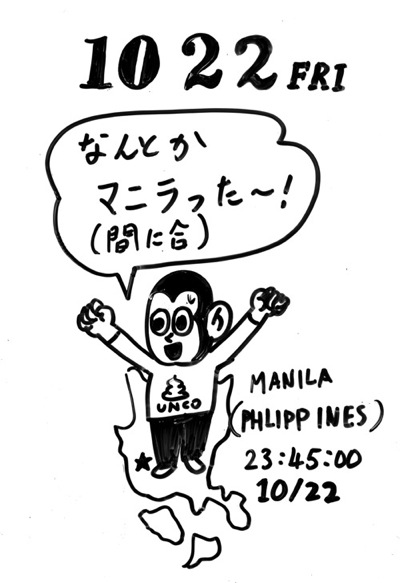 10 22 FRI
なんとか
マニラった〜!
(間に合)
UNCO
MANILA
(PHLIPPINES)
23:45:00
10/22